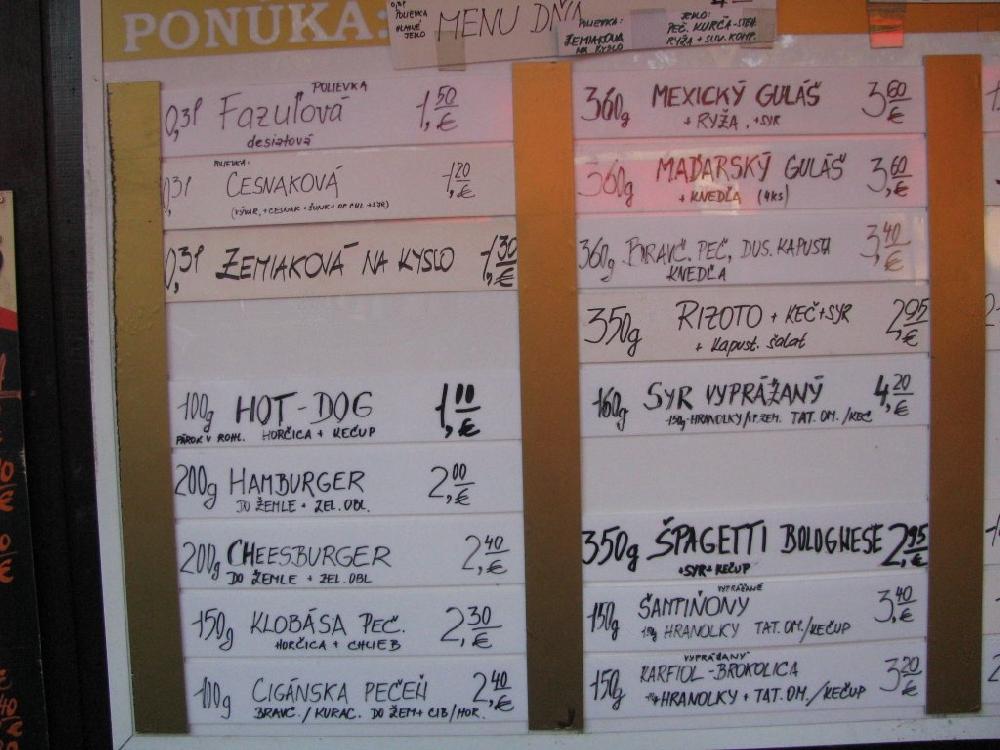 PONÚKA:
POLIEVKA
JEDLO
MENU DŇA
POLIEVKA:
ZEMIAKOVÁ
NA KYSLO
JEDLO:
PEČ. KURČA-STEH.
RYŽA + SLIV. KOMP.
POLIEVKA
0,3l Fazuľová 1,50 €
desiatová
POLIEVKA:
0,3l CESNAKOVÁ 1,20 €
0,3l ZEMIAKOVÁ NA KYSLO 1,30 €
100g HOT-DOG 1,10 €
PÁROK V ROHL. HORČICA + KEČUP
200g HAMBURGER 2,00 €
DO ŽEMLE + ZEL. OBL.
200g CHEESBURGER 2,40 €
DO ŽEMLE + ZEL. OBL
150g KLOBÁSA PEČ. 2,30 €
HORČICA + CHLIEB
100g CIGÁNSKA PEČEŇ 2,40 €
BRAVČ./KURAC. DO ŽEM + CIB/HOR.
360g MEXICKÝ GULÁŠ 3,60 €
+ RYŽA, +SYR
360g MAĎARSKÝ GULÁŠ 3,60 €
+ KNEDĽA (4ks)
360g BRAVČ. PEČ, DUS. KAPUSTA 3,40 €
KNEDĽA
350g RIZOTO + KEČ+SYR 2,95 €
+ kapust. šalát
160g SYR VYPRÁŽANÝ 4,20 €
150g HRANOLKY/V.ZEM. TAT. OM./KEČ
350g ŠPAGETTI BOLOGNESE 2,95 €
+SYR+KEČUP
VYPRÁŽANÉ
150g ŠAMPIŇONY 3,40 €
150g HRANOLKY TAT. OM./KEČUP
VYPRÁŽANÝ
150g KARFIOL-BROKOLICA 3,20 €
HRANOLKY + TAT. OM./KEČUP